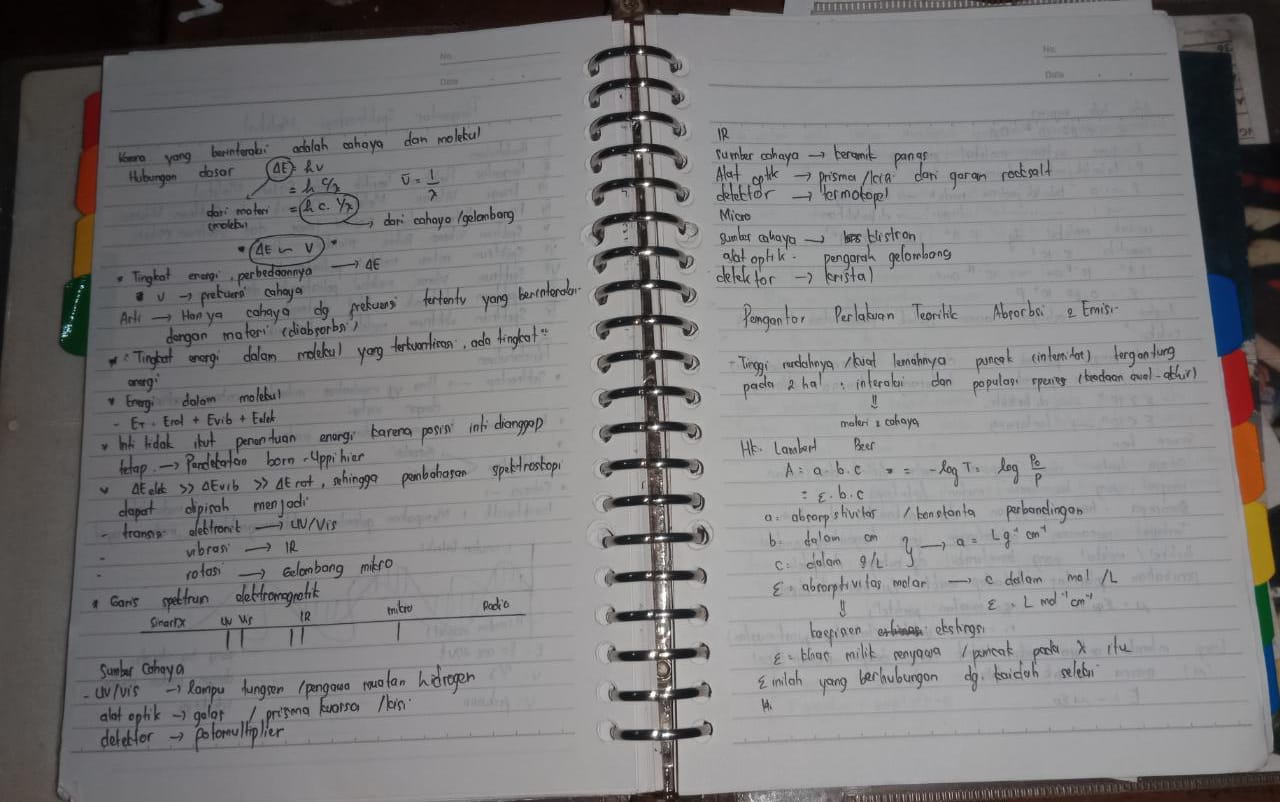 No.
Date
Karena yang berinteraksi adalah cahaya dan molekul
Hubungan dasar ΔE = hv
= h c/λ
ῡ = 1/λ
dari materi = h c. 1/λ → dari cahaya /gelombang
(molekul
* ΔE ~ V *
* Tingkat energi, perbedaannya → ΔE
* v → frekuensi cahaya
Arti → Hanya cahaya dg frekuensi tertentu yang berinteraksi
dengan materi (diabsorbsi)
* Tingkat energi dalam molekul yang terkuantisasi, ada tingkat"
energi
* Energi dalam molekul
- ET = Erot + Evib + Eelek
* Inti tidak ikut penentuan energi karena posisi inti dianggap
tetap → Pendekatan born-Oppihier
* ΔEelek >> ΔEvib >> ΔErot, sehingga pembahasan spektroskopi
dapat dipisah menjadi
- transisi elektronik → UV/Vis
- vibrasi → IR
- rotasi → Gelombang mikro
* Garis spektrum elektromagnetik
SinarX UV Vis IR micro Radio
Sumber Cahaya
- UV/Vis → lampu tungsen /pengawa muatan hidrogen
alat optik → gelas / prisma kuarsa /kisi
detektor → potomultiplier
No.
Date
IR
Sumber cahaya → keramik panas
Alat optik → prisma /kisi dari garam rocksalt
detektor → termokopel
Micro
Sumber cahaya → klistron
alat optik - pengarah gelombang
detektor → kristal
Pengantar Perlakuan Teoritik Absorbsi & Emisi
- Tinggi rendahnya /kuat lemahnya puncak (intensitas) tergantung
pada 2 hal : interaksi dan populasi spesies (keadaan awal-akhir)
⇓
materi & cahaya
Hk. Lambert Beer
A = a.b.c = -log T = log Po/P
= ε.b.c
a = absorpstivitas / konstanta perbandingan
b = dalam cm } → a = Lg⁻¹ cm⁻¹
c = dalam g/L
ε = absorptivitas molar → c dalam mol /L
⇓ ε = L mol⁻¹ cm⁻¹
koepisien ekstingsi
ε = khas milik senyawa /puncak pada λ itu
ε inilah yang berhubungan dg. kaidah seleksi
Hi